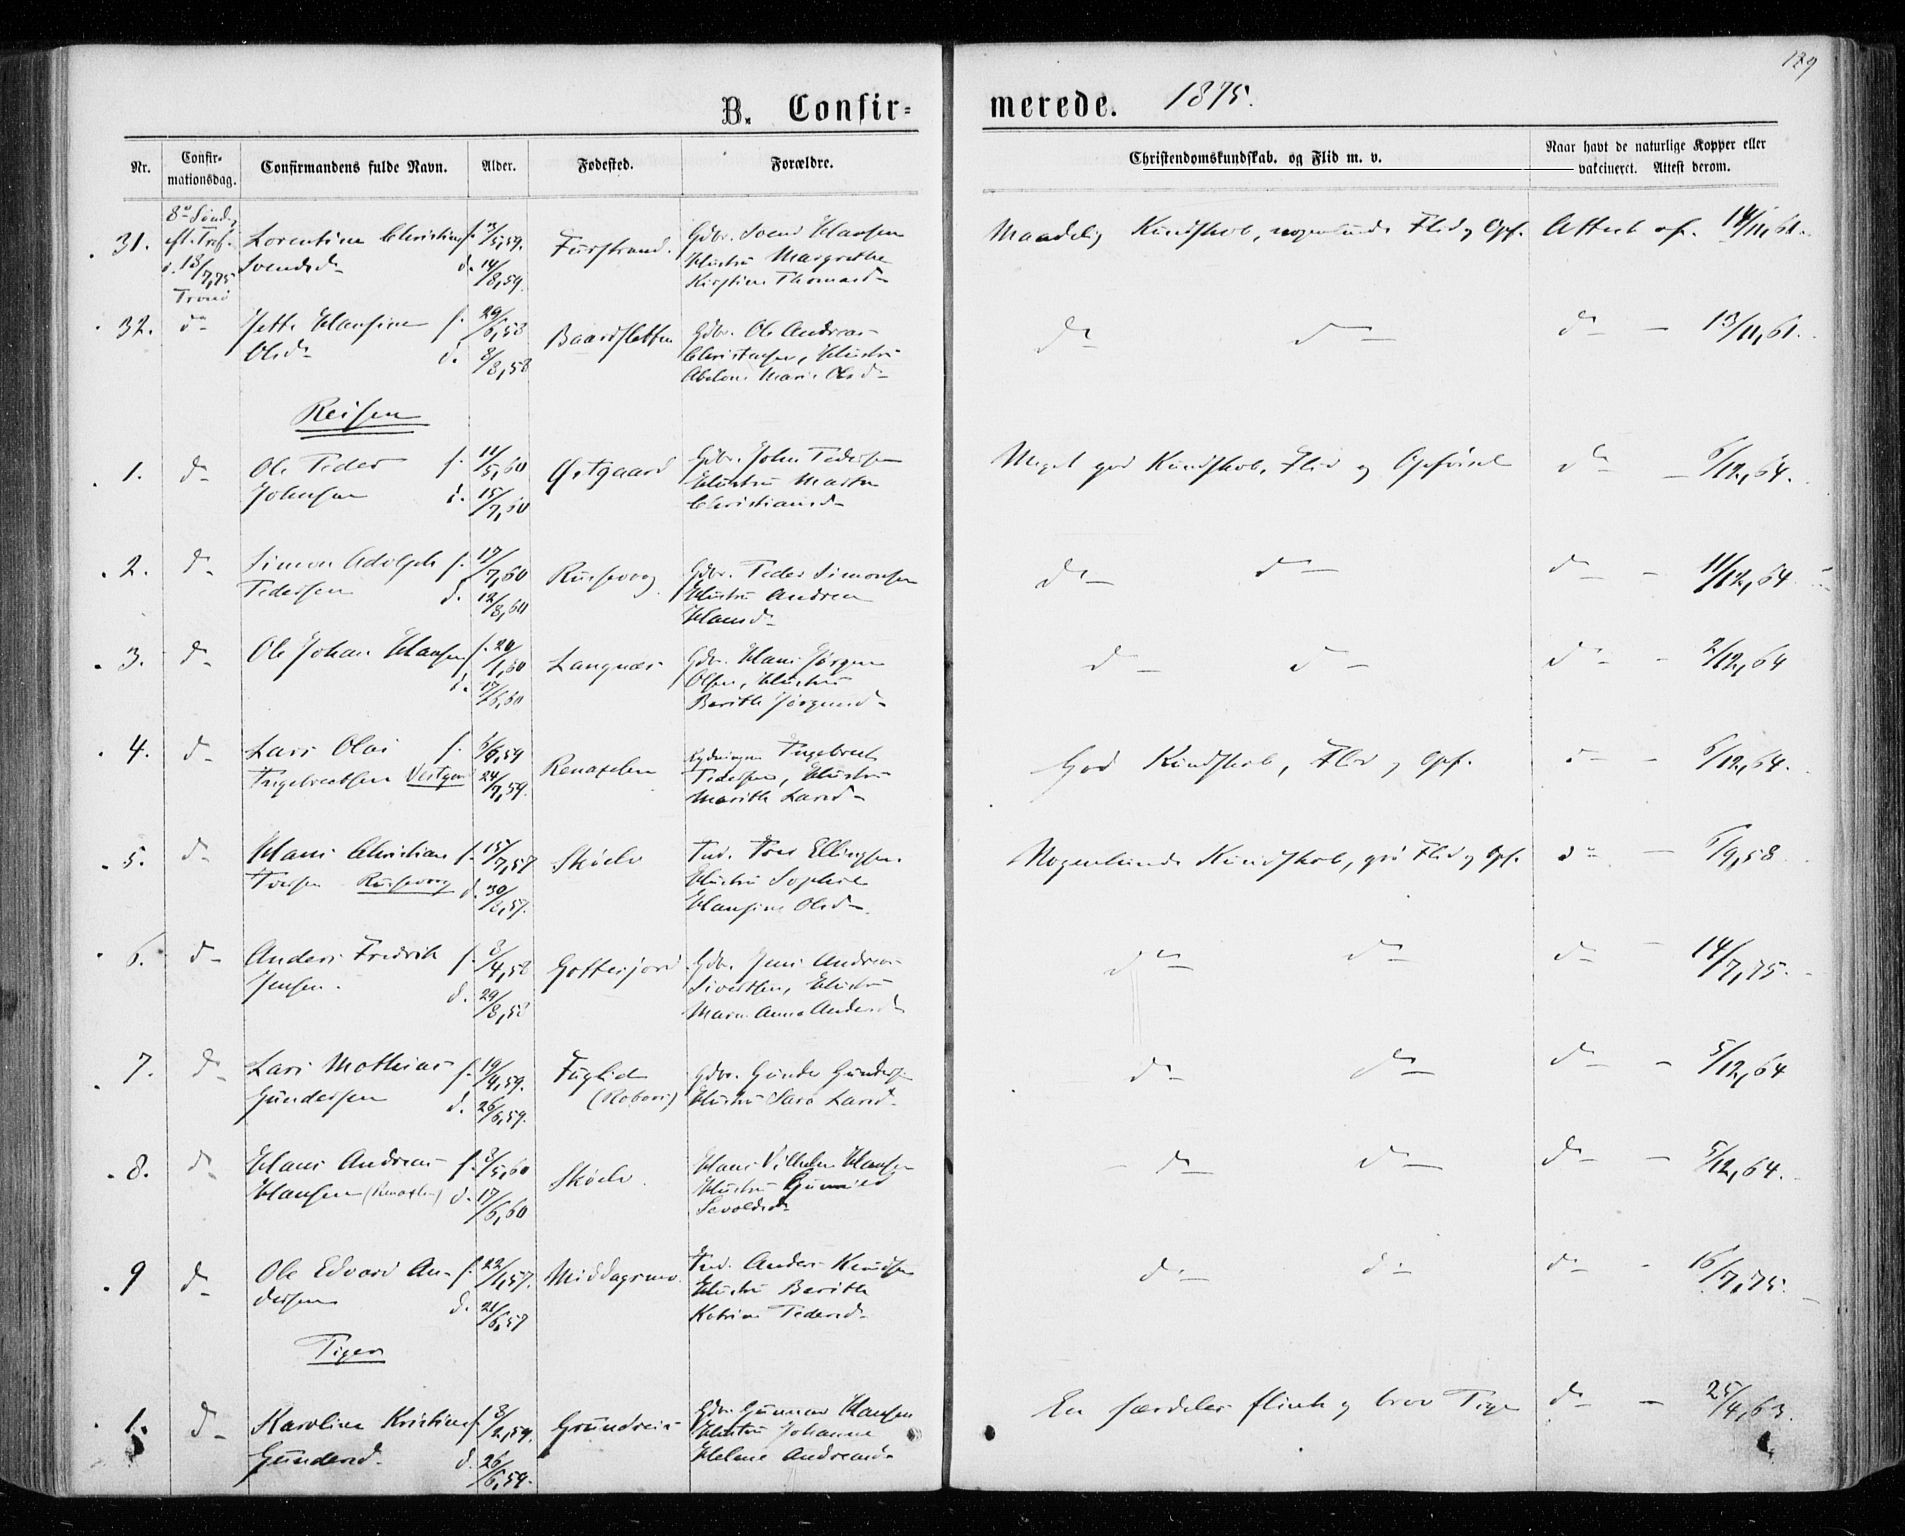 179
B. Confir-
merede. 1875.
Nr.
Confir-
mationsdag.
Confirmandens fulde Navn.
Alder.
Fødested.
Forældre.
Christendomskundskab. og Flid m. v.
Naar havt de naturlige Kopper eller
vakcineret. Attest derom.
31.
8de Sønd.
eft. Tref.
d. 18/7,75
Lorentine Christine f.
Svendsd.
d. 14/8,59.
Gdbr. Svend Hansen
Hustru Margrethe
Kirstine Thomasd.
Maadelig Kundskab, nogenlunde Flid og Opf.
Attest af. 14/11,61.
32. do
Jette Hansine f. 29/6,58
Olsd. d. 8/8,58
Baardsletten
Gdbr. Ole Andreas
Christensen, Hustru
Abelone Marie Olsd.
do do do 13/11,61.
Reisen
1. do
Ole Peder f. 14/5,60
Johnsen d. 15/7,60
Østgaard
Gdbr. John Pedersen
Hustru Marthe
Christiansd.
Meget god Kundskab, Flid og Opførsel
do 6/12,64.
2. do
Simon Adolph f. 17/7,60
Pedersen d. 12/8,60
Russevog
Gdbr. Peder Simonsen
Hustru Andrea
Hansd.
do do do 11/12,64
3. do
Ole Johan Hansen f. 20/1,60
d. 17/6,60
Langnæs
Gdbr. Hans Jørgen
Olsen, Hustru
Berith Jørgensd.
do do do 2/12,64
4. do
Lars Olai f.
Ingebrectsen 24/7,59.
Ingebrect
Pedersen, Hustru
Marith Larsd.
God Kundskab, Flid og Opf.
do 6/12,64.
5. do
Hans Christian f. 15/7,57
Toresen Russevog d. 30/8,57.
Skøelv
Ind. Tore Ellingsen
Hustru Sophie
Hansine Olsd.
Nogenlunde Kundskab, god Flid og Opf.
do 6/9,58
6. do
Anders Fredrik f. 3/4,58
Jensen. d. 29/8,58
Gottesjord
Gdbr. Jens Andreas
Sivertsen, Hustru
Maren Anna Andersd.
do do do 14/7,75.
7. do
Lars Mathias f. 19/4,59.
Gundersen d. 26/6,59.
Fuglid
Gdbr. Gunder Gundersen
Hustru Sara Larsd.
do do do 5/12,64
8. do
Hans Andreas f. 3/5,60
Hansen d. 17/6,60
Skøelv.
Hans Vilhelm Hansen
Hustru Gunild
Sevoldsd.
do do do 5/12,64.
9 do
Ole Edvard An- f. 22/1,57.
dersen d. 21/6,57
Ind. Anders Knudsen
Hustru Berith
Katrine Pedersd.
do do do 16/7,75.
Piger
1. do
Karoline Kristine f. 8/2,59.
Gundersd. d. 26/6,59.
Grundreis
Gdbr. Gunner Hansen
Hustru Johanne
Helene Andreasd.
En særdeles flink og brav Pige
do 25/4,63.